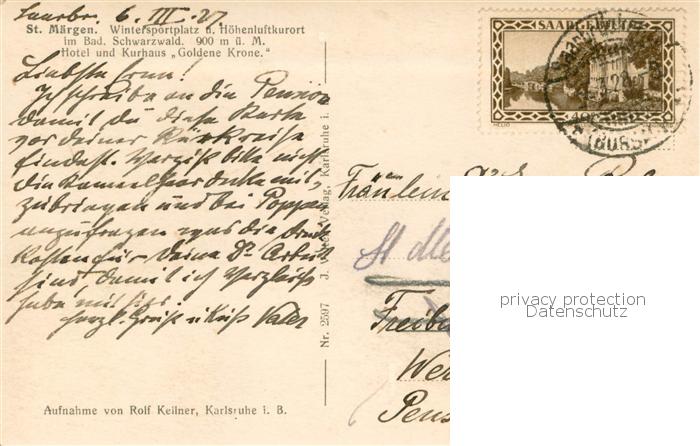 Saarbr. 6. III. 27
St. Märgen. Wintersportplatz u. Höhenluftkurort
im Bad. Schwarzwald. 900 m ü. M.
Hotel und Kurhaus „Goldene Krone."
Liebste
Ich schreibe an die Pension
damit du diese Karte
vor deiner Rückreise
findest. Vergiss bitte nicht
die Kamelhaardecke mit
zubringen und bei Poppen
anzufragen was die Druck
kosten für Deine Dr Arbeit
sind, damit ich Vergleich
habe mit hier.
herzl. Grüße u Kuß Vater
Aufnahme von Rolf Kellner, Karlsruhe i. B.
Nr. 2597 J. Verlag, Karlsruhe i.
SAARGEBIET
HELIO
Fräulein
St
Freibu
Pens
privacy protection
Datenschutz